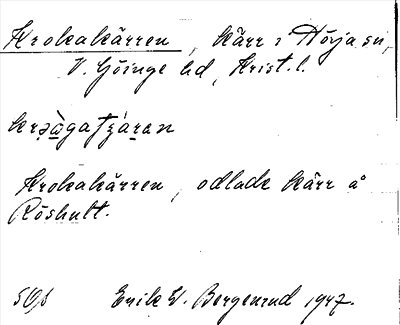 Krokakärren, kärr i Hörja sn,
V. Göinge hd, Krist. l.
Krokakärren, odlade kärr å
Röshult.
Erik W. Bergenrud 1947.